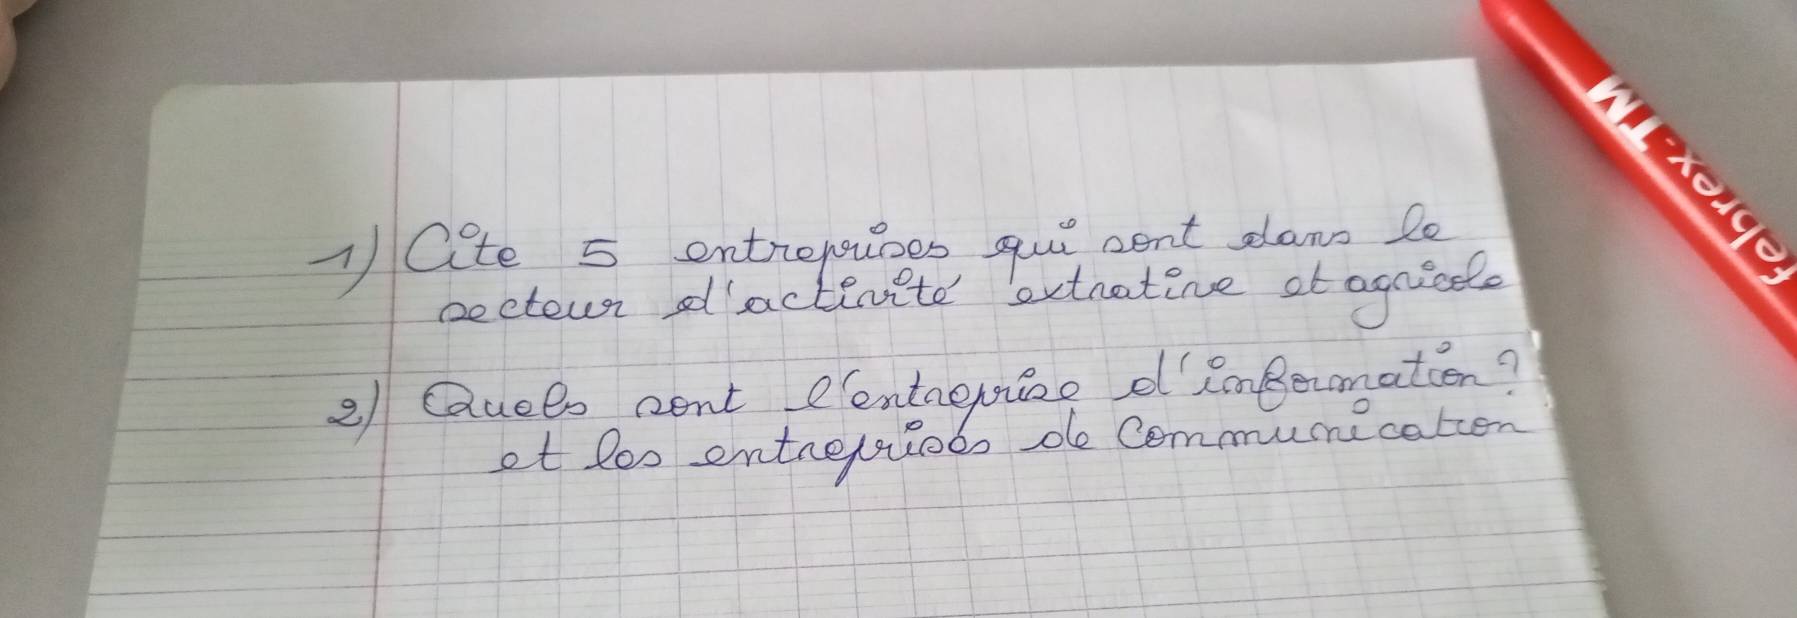 1) Cite 5 entreprises qui sont dans le
secteur d'activité extrative et agricole
2) Quels sont l'entreprise d'information?
et les entreprises de Communication
febrex-TM